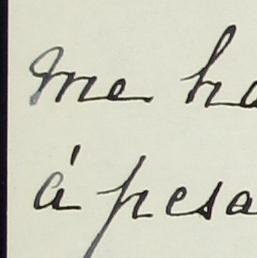 me ha
á pesa